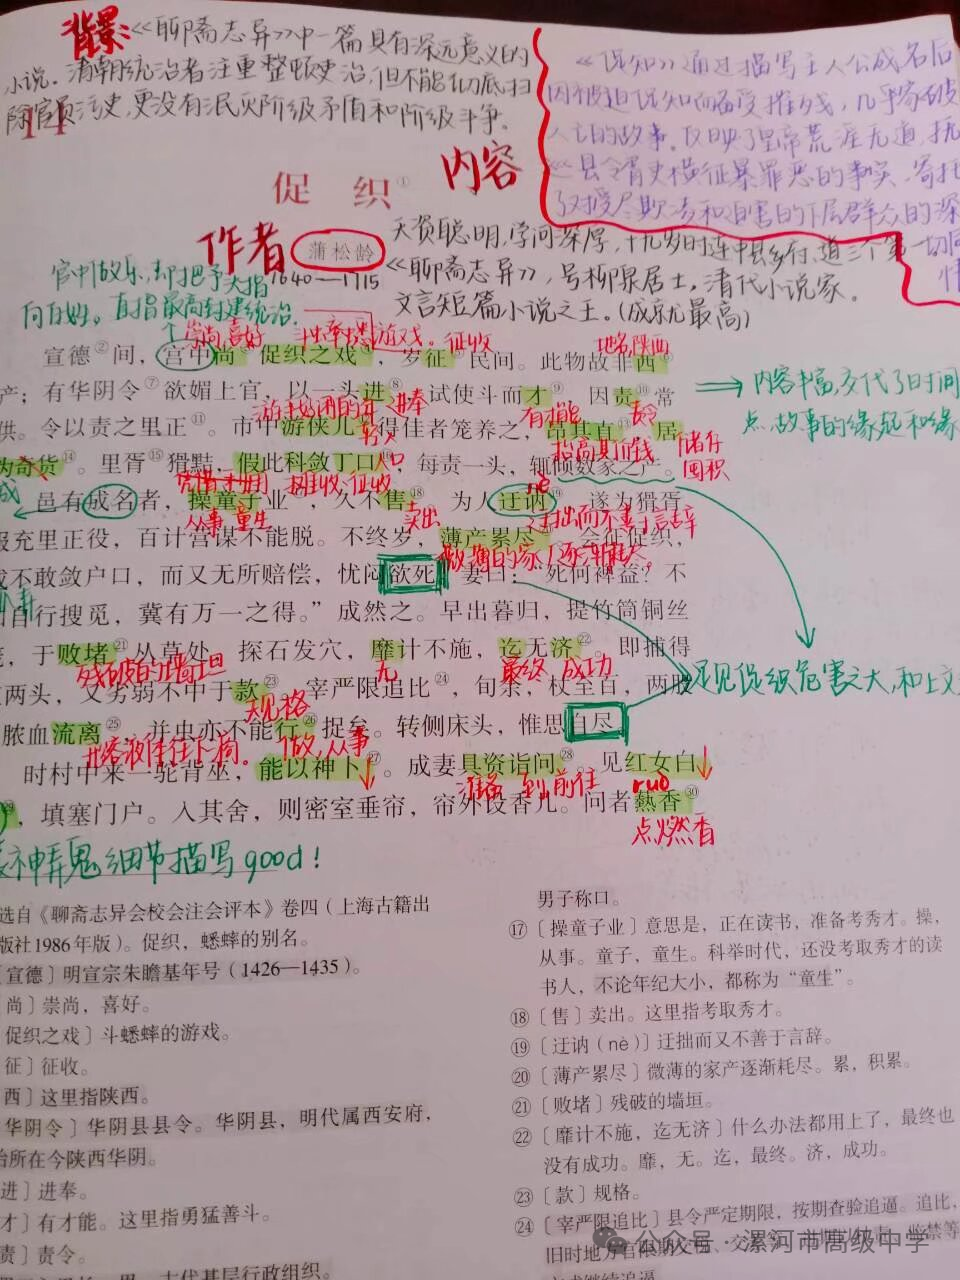 背景:《聊斋志异》中一篇具有深远意义的
小说。清朝统治者注重整顿吏治,但不能彻底扫
除官员污吏,更没有泯灭阶级矛盾和阶级斗争。
《促织》通过描写主人公成名后
因被迫促织而备受摧残,几乎家破
人亡的故事。反映了皇帝荒淫无道,抚
县令胥吏横征暴罪恶的事实,寄托
了对受尽欺凌和迫害的下层群众的深
切同
情
促 织①
内容
作者
蒲松龄
1640—1715
天资聪明,学问深厚,十九岁时连中县乡府、道三个第一
《聊斋志异》,号柳泉居士,清代小说家。
文言短篇小说之王。(成就最高)
官中做乐,却把予头指
向百姓。直指最高封建统治。
崇尚喜好
斗蟋蟀游戏。征收
地名陕西
宣德②间,宫中尚 促织之戏 ,岁征 民间。此物故非西
产;有华阴令⑦欲媚上官,以一头进⑧,试使斗而才⑨,因责⑩常
供。令以责之里正⑪。市中游侠儿 得佳者笼养之,昂其直⑬,居
为奇货⑭。里胥⑮猾黠,假此科敛丁口 ,每责一头,辄倾数家之产。
游手好闲的年
进奉
有才能
责令
抬高其价钱
储存
囤积
人口
摊收、征收
内容丰富,交代了时间
点,故事的缘起和缘
邑有成名者,操童子业 ,久不售⑱。为人迂讷⑲,遂为猾胥
报充里正役,百计营谋不能脱。不终岁,薄产累尽 。会征促织,
成不敢敛户口,而又无所赔偿,忧闷欲死。妻曰:“死何裨益?不
如自行搜觅,冀有万一之得。”成然之。早出暮归,提竹筒铜丝
笼,于败堵㉑丛草处,探石发穴,靡计不施,迄无济㉒。即捕得
三两头,又劣弱不中于款㉓。宰严限追比㉔,旬余,杖至百,两股
间脓血流离㉕,并虫亦不能行㉖捉矣。转侧床头,惟思自尽。
从事 童生
卖出
nè
迂拙而不善于言辞
微薄的家产逐渐耗尽。
残破的墙垣
无
最终 成功
规格
形容液体往下淌。
做,从事
足见促织危害之大,和上文
时村中来一驼背巫,能以神卜㉗。成妻具资诣问㉘。见红女白
㉙,填塞门户。入其舍,则密室垂帘,帘外设香几。问者爇香㉚
准备 到、前往
ruò
点燃香
装神弄鬼细节描写good!
选自《聊斋志异会校会注会评本》卷四(上海古籍出
版社1986年版)。促织,蟋蟀的别名。
〔宣德〕明宣宗朱瞻基年号(1426—1435)。
〔尚〕崇尚,喜好。
〔促织之戏〕斗蟋蟀的游戏。
〔征〕征收。
〔西〕这里指陕西。
〔华阴令〕华阴县县令。华阴县,明代属西安府,
治所在今陕西华阴。
〔进〕进奉。
〔才〕有才能。这里指勇猛善斗。
〔责〕责令。
男子称口。
⑰〔操童子业〕意思是,正在读书,准备考秀才。操,
从事。童子,童生。科举时代,还没考取秀才的读
书人,不论年纪大小,都称为“童生”。
⑱〔售〕卖出。这里指考取秀才。
⑲〔迂讷(nè)〕迂拙而又不善于言辞。
⑳〔薄产累尽〕微薄的家产逐渐耗尽。累,积累。
㉑〔败堵〕残破的墙垣。
㉒〔靡计不施,迄无济〕什么办法都用上了,最终也
没有成功。靡,无。迄,最终。济,成功。
㉓〔款〕规格。
㉔〔宰严限追比〕县令严定期限,按期查验追逼。追比,
旧时地方官限期
监禁等
公众号·漯河市高级中学